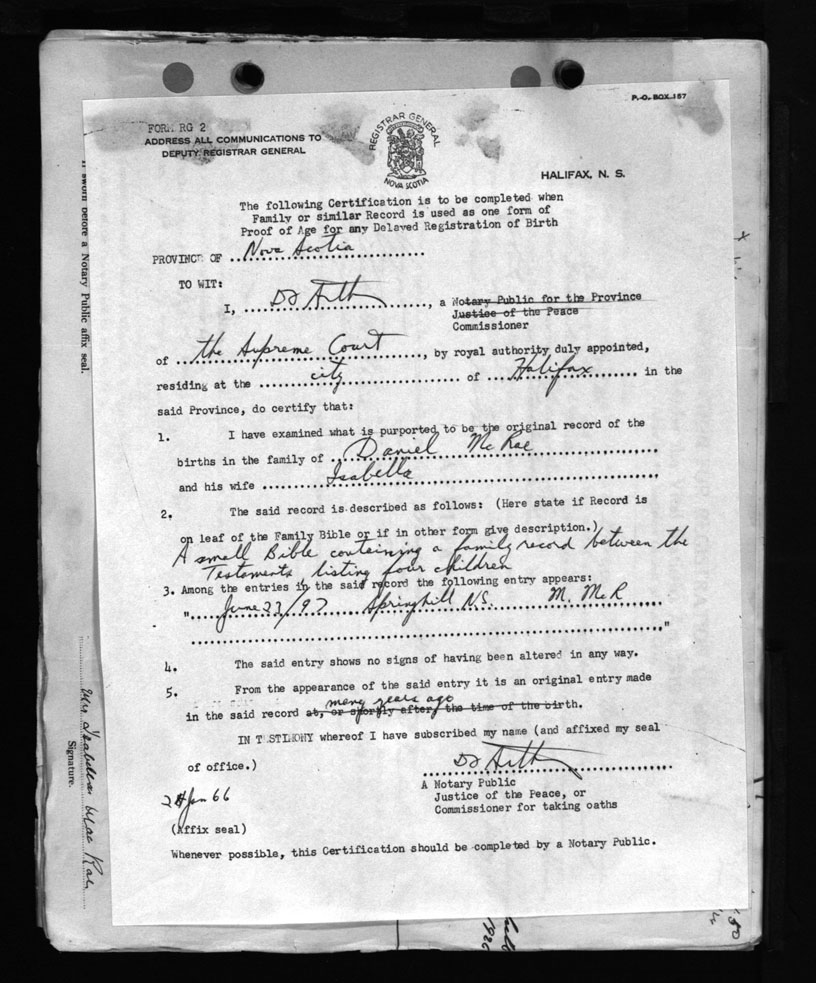 P. O. BOX 157
FORM RG 2
ADDRESS ALL COMMUNICATIONS TO
DEPUTY REGISTRAR GENERAL
REGISTRAR GENERAL
NOVA SCOTIA
HALIFAX, N. S.
The following Certification is to be completed when
Family or similar Record is used as one form of
Proof of Age for any Delayed Registration of Birth
PROVINCE OF Nova Scotia
TO WIT:
I, , a Notary Public for the Province
Justice of the Peace
Commissioner
of the Supreme Court, by royal authority duly appointed,
residing at the city of Halifax in the
said Province, do certify that:
1. I have examined what is purported to be the original record of the
births in the family of Daniel McRae
and his wife Isabella
2. The said record is described as follows: (Here state if Record is
on leaf of the Family Bible or if in other form give description.)
A small Bible containing a family record between the
Testaments, listing four children
3. Among the entries in the said record the following entry appears:
" June 27/97 Springhill N.S. M. McR
"
4. The said entry shows no signs of having been altered in any way.
5. From the appearance of the said entry it is an original entry made
many years ago
in the said record at, or shortly after, the time of the birth.
IN TESTIMONY whereof I have subscribed my name (and affixed my seal
of office.)
A Notary Public
Justice of the Peace, or
Commissioner for taking oaths
Jan 66
(Affix seal)
Whenever possible, this Certification should be completed by a Notary Public.
If sworn before a Notary Public affix seal.
Mrs Isabella Mac Rae
Signature.
1926